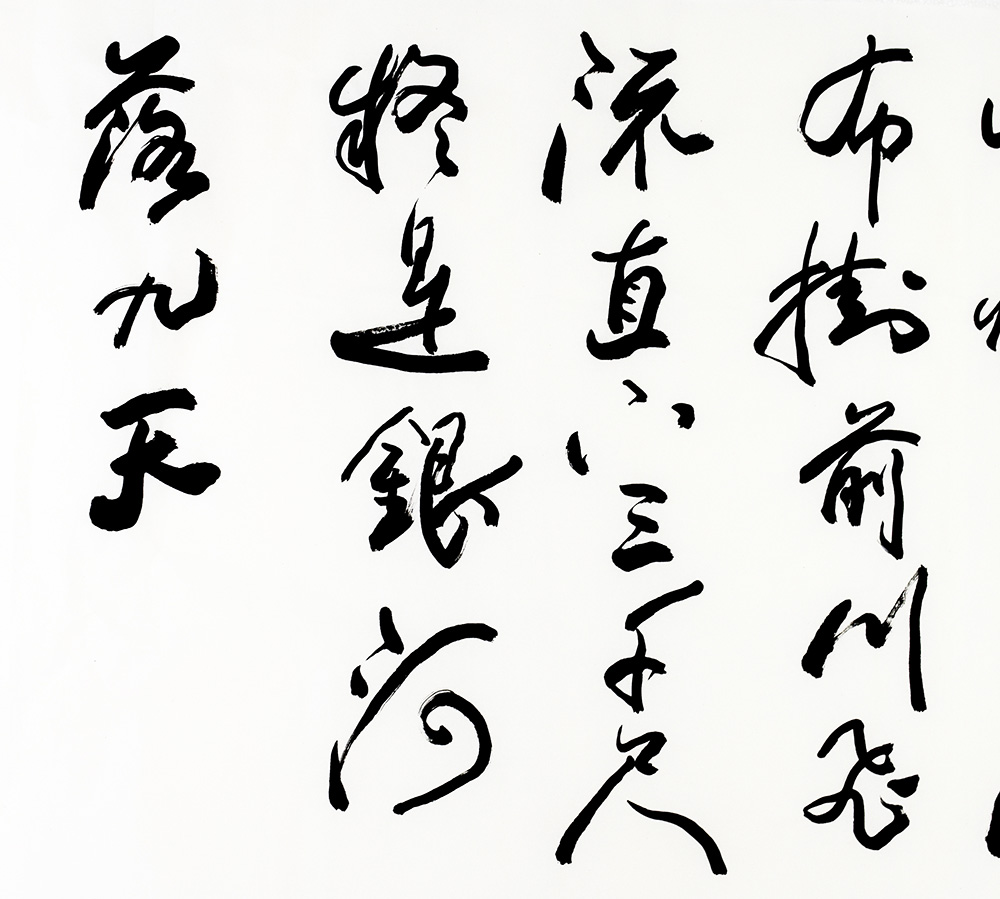 布掛前川飛
流直下三千尺
疑是銀河
落九天